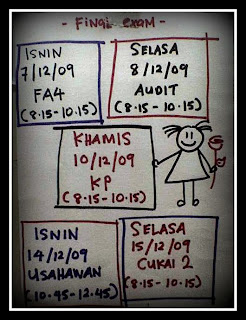 - FINAL EXAM -
ISNIN
7/12/09
FA4
(8.15-10.15)
SELASA
8/12/09
AUDIT
(8.15-10.15)
KHAMIS
10/12/09
KP
(8.15-10.15)
ISNIN
14/12/09
USAHAWAN
(10.45-12.45)
SELASA
15/12/09
CUKAI 2
(8.15-10.15)